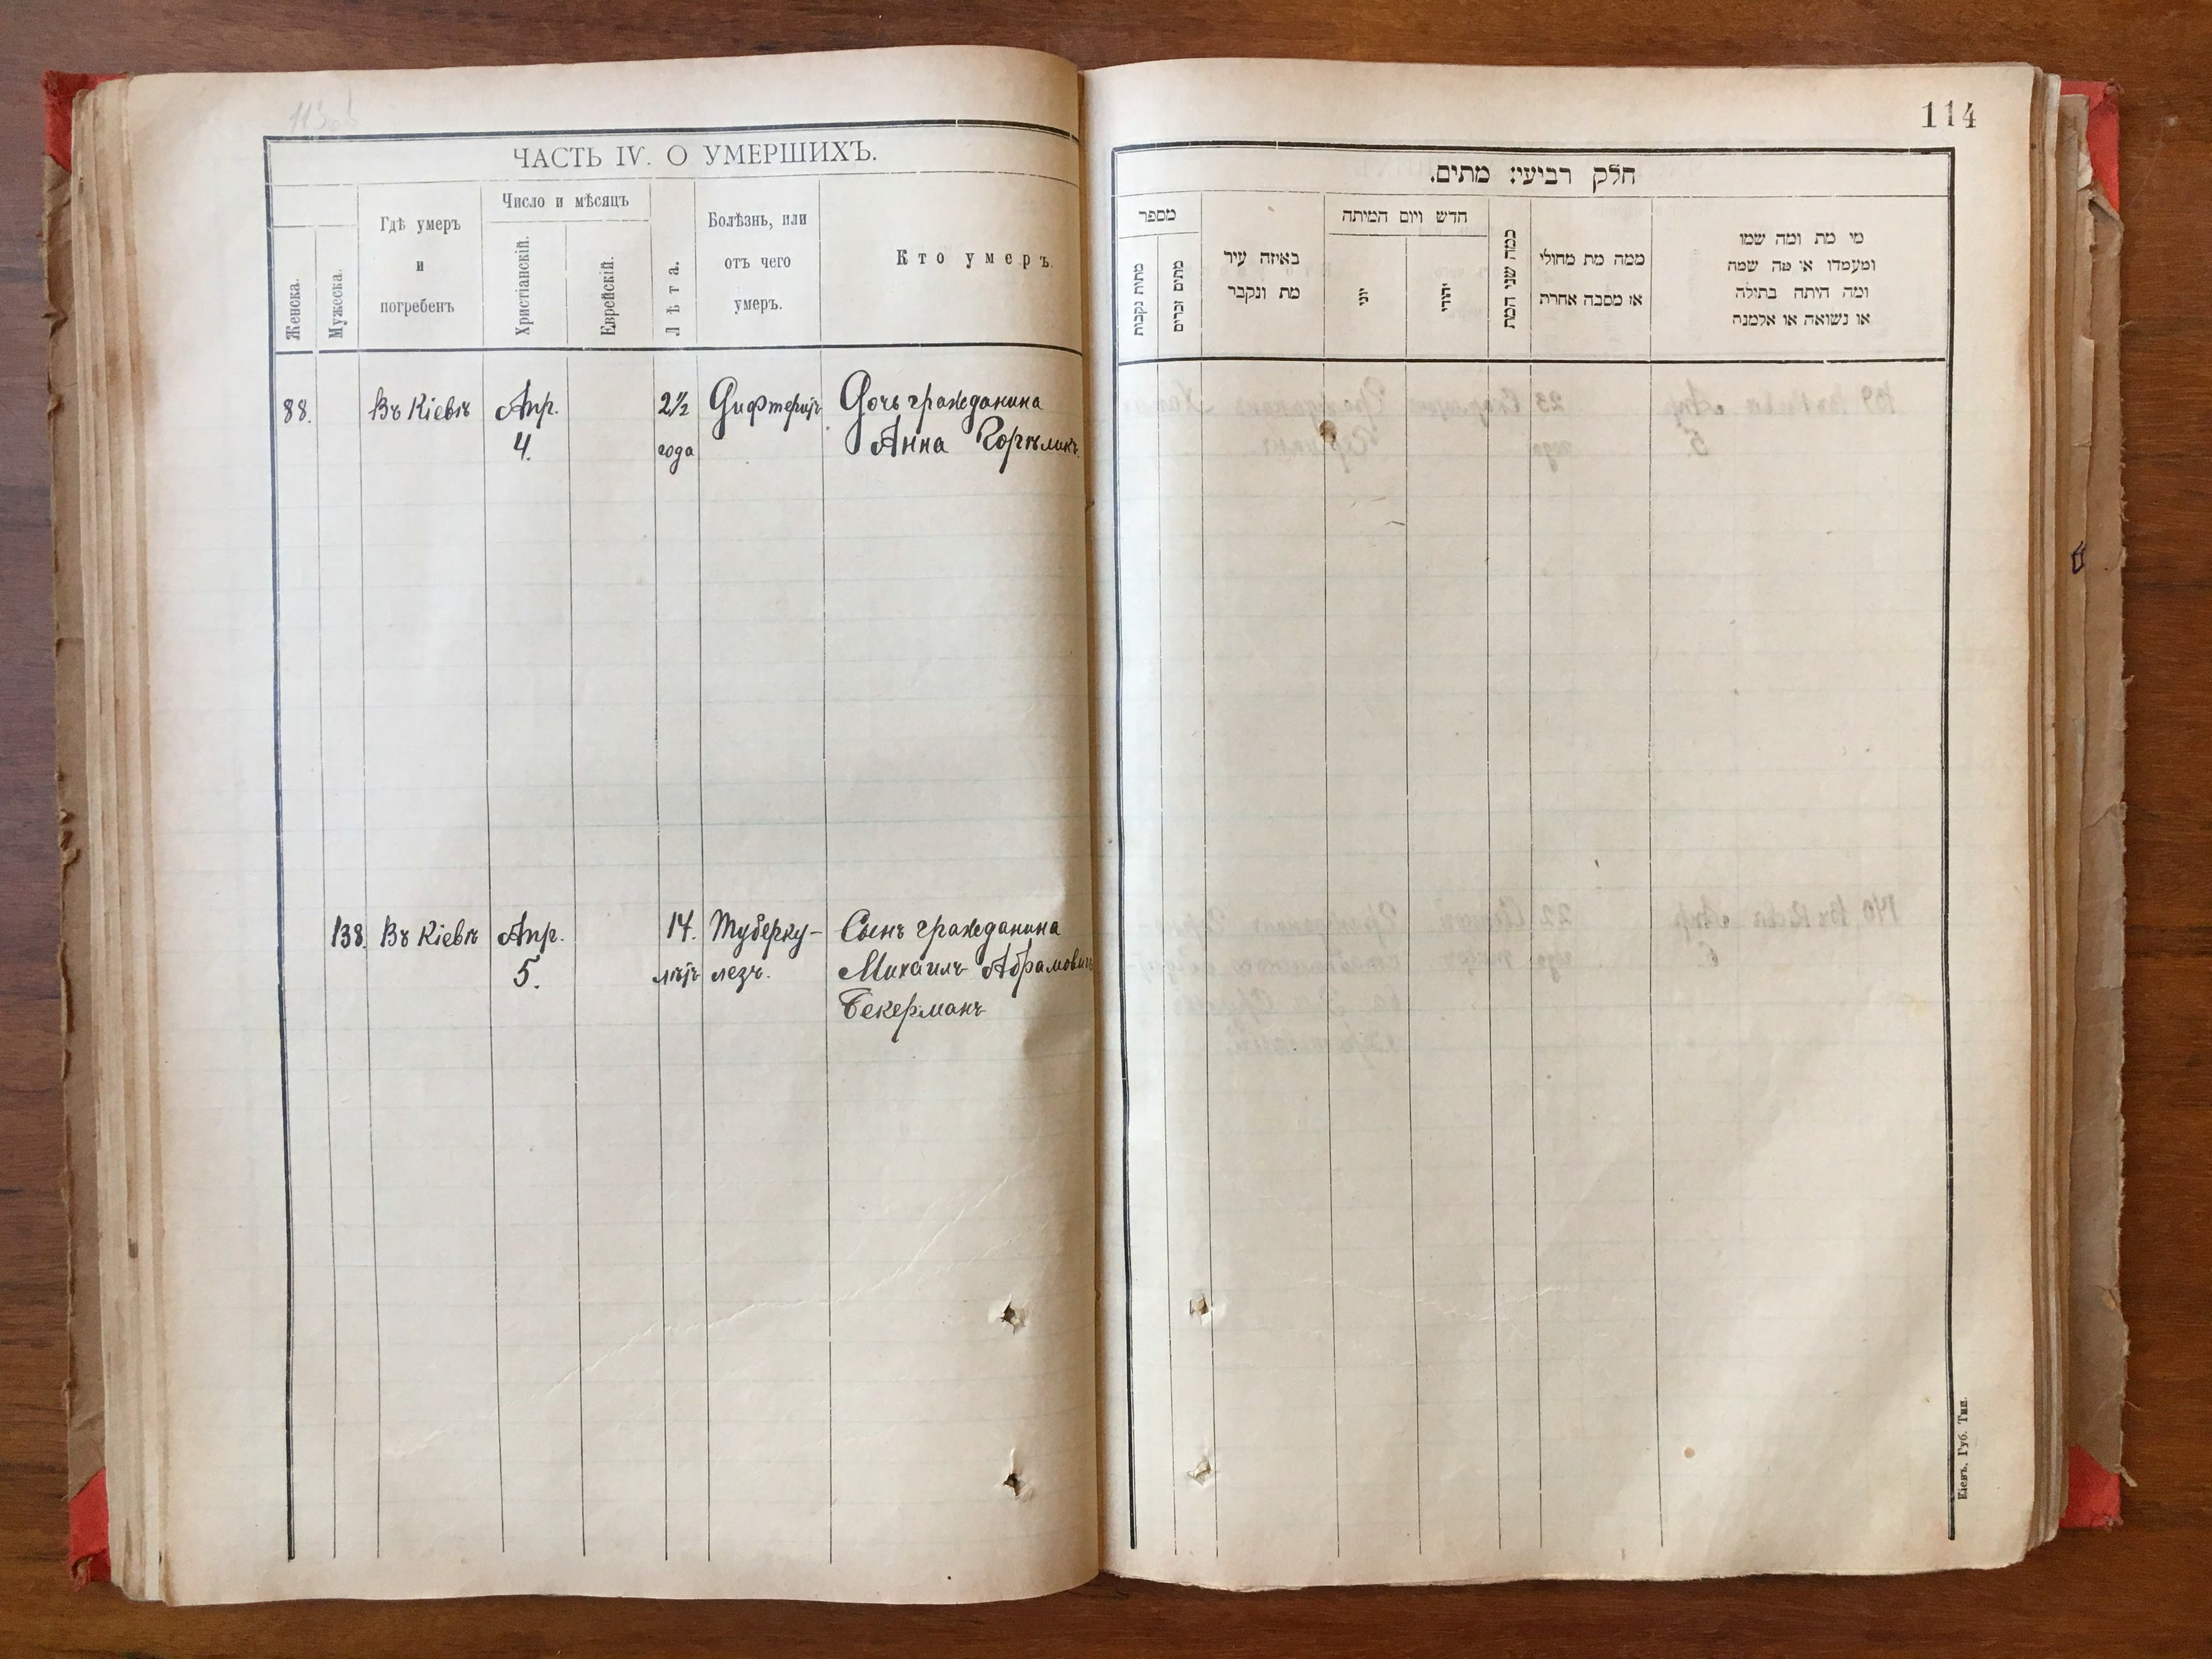 114
ЧАСТЬ IV. О УМЕРШИХЪ.
Женска.
Мужеска.
Гдѣ умеръ
и
погребенъ
Число и мѣсяцъ
Христіанскій.
Еврейскій.
Лѣта.
Болѣзнь, или
отъ чего
умеръ.
Кто умеръ.
88. Въ Кіевѣ Апр. 2½ Дифтеритъ Дочь гражданина
4. года Анна Горѣликъ.
138. Въ Кіевѣ Апр. 14. Туберку- Сынъ гражданина
5. лѣтъ лезъ. Михаилъ Абрамовичъ
Бекерманъ
חלק רביעי: מתים.
מספר
מתות נקבות
מתים זכרים
באיזה עיר
מת ונקבר
חדש ויום המיתה
יוני
יהודי
כמה שני המת
ממה מת מחולי
או מסבה אחרת
מי מת ומה שמו
ומעמדו או מה שמה
ומה היתה בתולה
או נשואה או אלמנה
Кіевъ, Губ. Тип.